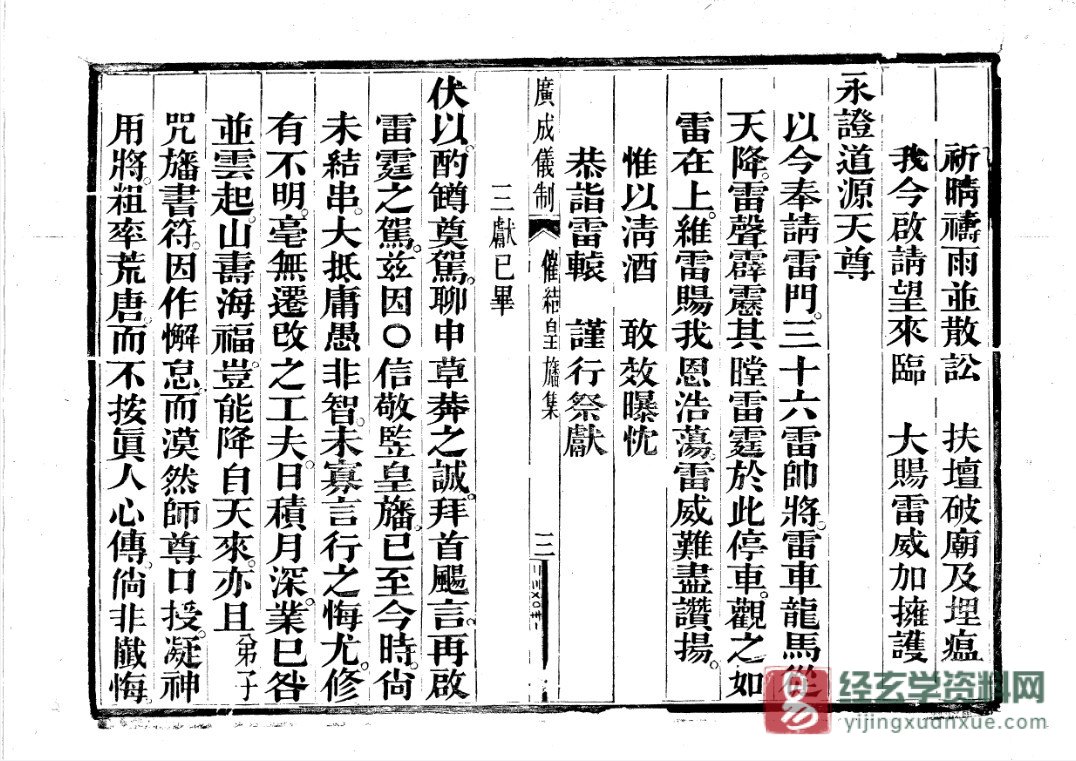 祈晴禱雨並散訟　扶壇破廟及埋瘟
我今啟請望來臨　大賜雷威加擁護
永證道源天尊
以今奉請雷門。三十六雷帥將。雷車龍馬從
天降。雷聲霹靂其瞠雷霆於此停車。觀之如
雷在上。維雷賜我恩浩蕩。雷威難盡讚揚。
惟以清酒　敢效曝忱
恭詣雷轅　謹行祭獻
廣成儀制　催結皇旛集　三
三獻已畢
伏以。酌罇奠駕。聊申草莽之誠。拜首颺言。再啟
雷霆之駕。茲因〇信敬監皇旛。已至今時。尚
未結串。大抵庸愚非智。未寡言行之悔尤。修
有不明。毫無遷改之工夫。日積月深。業已咎
並雲起。山壽海福。豈能降自天來。亦且弟子八
咒旛書符。因作懈怠。而漠然師尊口授。凝神
用將。粗率荒唐。而不按眞人心傳。倘非懺悔
经玄学资料网
yijingxuanxue.com